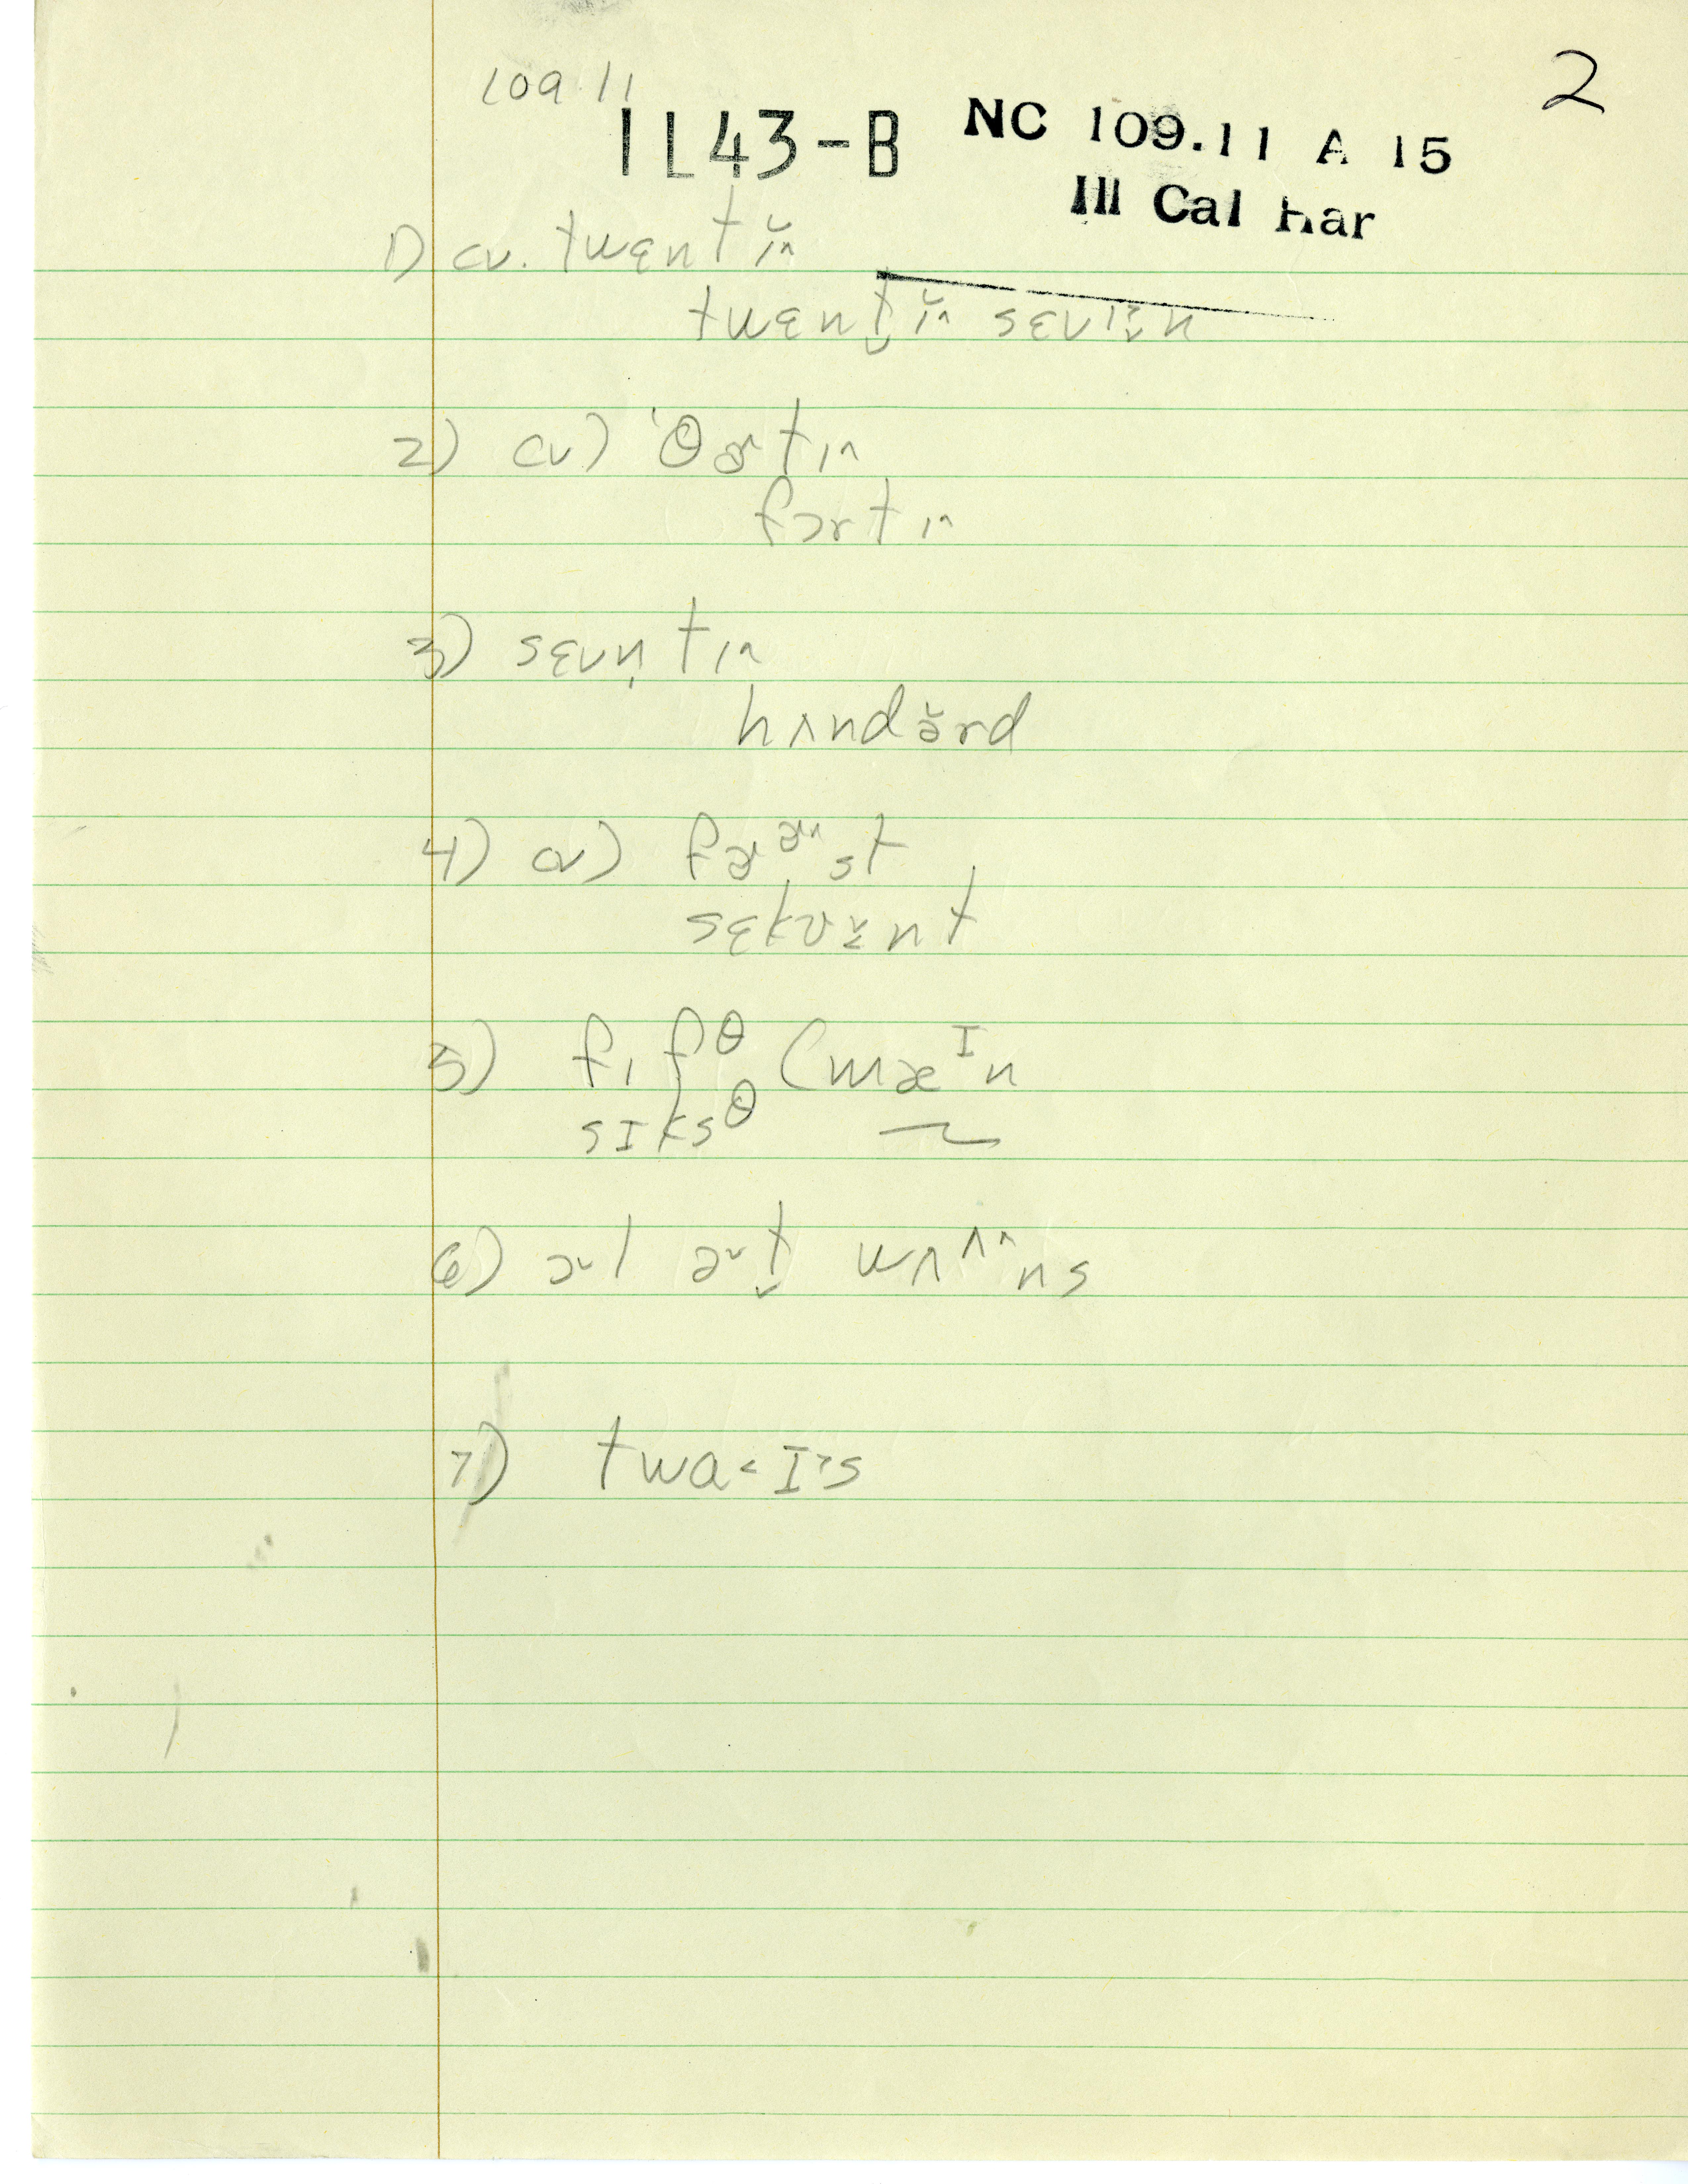 109.11
2
1L43-B
NC 109.11 A 15
Ill Cal Har
1) cv. twɛntĭ^
twɛnt̬ĭ^ sɛvɪ̆n
2) cv) 'θɚtɪ^
fɔrtɪ^
3) sɛvn̩tɪ^
hʌndə̆rd
4) cv) fɚɚ^st
sɛkʊ̆nt
5) fɪfθ (mæIn
sIksθ
6) ɚl ɚt̬ wʌʌ^ns
7) twa<I>s